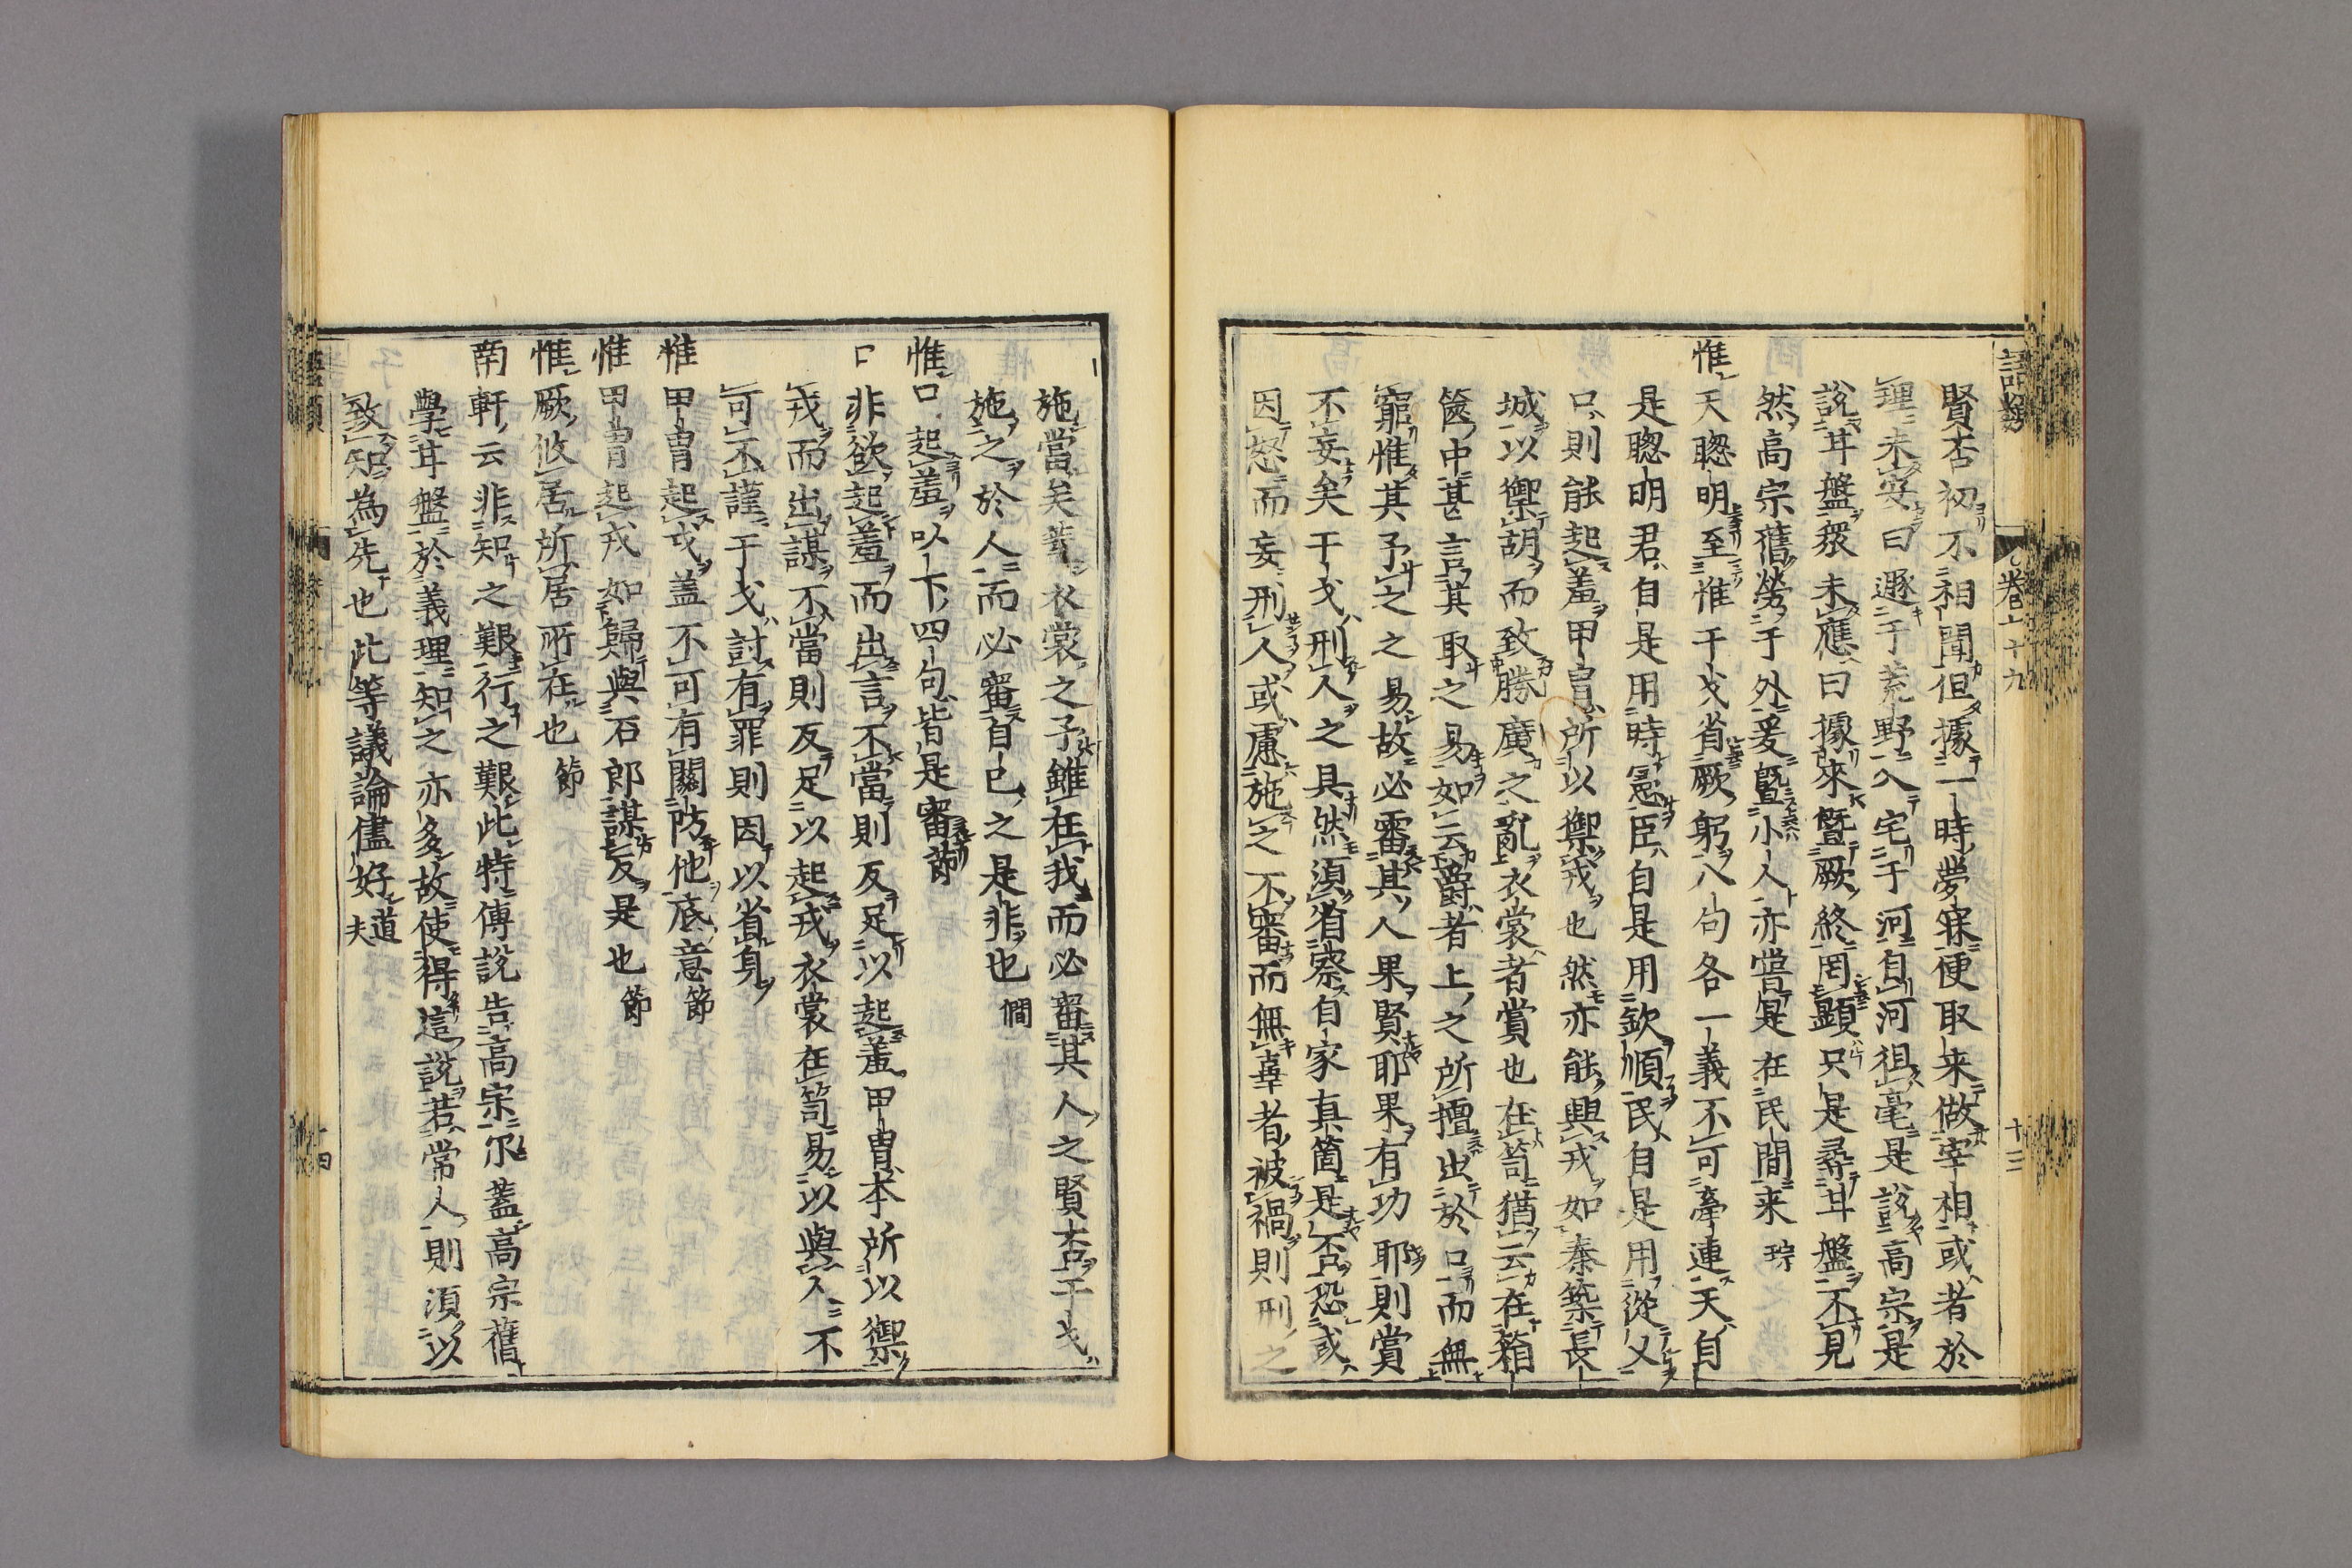 語類 卷七十九 十三
賢否初不相聞但據一時夢寐便取来做宰相或者於
理未安曰遯于荒野入宅于河自河徂亳是說高宗是
說甘盤衆未應曰據來曁厥終罔顯只是尋甘盤不見
然高宗舊勞于外爰曁小人亦嘗是在民間来 琮
惟天聰明至惟干戈省厥躬八句各一義不可牽連天自
是聰明君自是用時憲臣自是用欽順民自是用從乂
口則能起羞甲冑所以禦戎也然亦能興戎如秦築長
城以禦胡而致勝廣之亂衣裳者賞也在笥猶云在箱
篋中甚言其取之易如云爵者上之所擅出於口而無
窮惟其予之之易故必審其人果賢耶果有功耶則賞
不妄矣干戈刑人之具然須省察自家真箇是否恐或
因怒而妄刑人或慮施之不審而無辜者被禍則刑之
施當矣葢衣裳之予雖在我而必審其人之賢否干戈
施之於人而必審自已之是非也 僩
惟口起羞以下四句皆是審 節
口非欲起羞而出言不當則反足以起羞甲冑本所以禦
戎而出謀不當則反足以起戎衣裳在笥易以與人不
可不謹干戈討有罪則因以省身
惟甲冑起戎盖不可有關防他底意 節
惟甲冑起戎如歸與石郎謀反是也 節
惟厥攸居所居所在也 節
南軒云非知之艱行之艱此特傅說告高宗尔蓋高宗舊
學甘盤於義理知之亦多故使得這說若常人則須以
致知為先也此等議論儘好 道夫
語類 十四